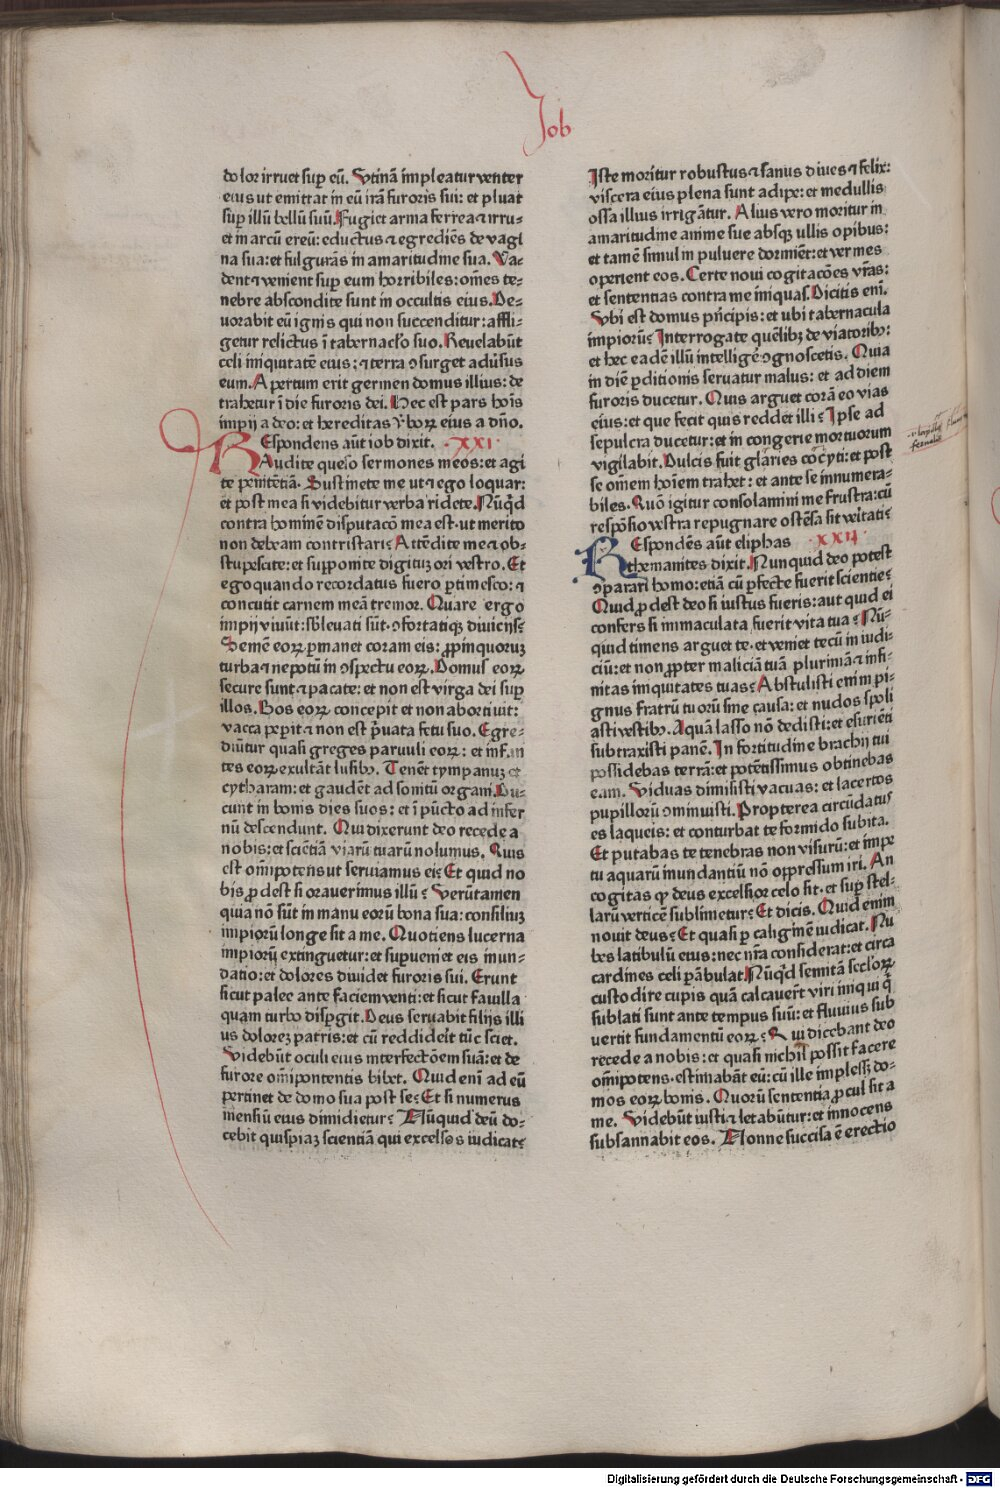 Job
dolor irruet sup eū. Vtinā impleatur venter
eius ut emittat in eū irā furoris sui: et pluat
sup illū bellū suū. Fugiet arma ferrea ⁊ irru⸗
et in arcū ereū: eductus ⁊ egrediēs de vagi
na sua: et fulgurās in amaritudine sua. Va⸗
dent ⁊ venient sup eum horribiles: om̄es te⸗
nebre abscondite sunt in occultis eius. De⸗
uorabit eū ignis qui non succenditur: affli⸗
getur relictus ī tabernac̄lo suo. Reuelabūt
celi iniquitatē eius: ⁊ terra ꝯsurget aduͥsus
eum. Apertum erit germen domus illius: de
trahetur ī die furoris dei. Hec est pars hoīs
impij a deo: et hereditas ꝟboꝝ eius a dn̄o.
REspondens aūt iob dixit. ·XXI·
Audite queso sermones meos: et agi
te penitētiā. Sustinete me ut ⁊ ego loquar:
et post mea si videbitur verba ridete. Nūqd
contra hominē disputacō mea est· ut merito
non debeam contristari? Attēdite me ⁊ ob⸗
stupescite: et supponite digituꝫ ori vestro. Et
ego quando recordatus fuero ꝑtimesco: ⁊
concutit carnem meā tremor. Quare ergo
impij viuūt: sb̄leuati sūt· ꝯfortatiqꝫ diuicijs?
Semē eoꝝ ꝑmanet coram eis: ꝓpinquoruꝫ
turba ⁊ nepotū in ꝯspectu eoꝝ. Domus eoꝝ
secure sunt ⁊ pacate: et non est virga dei sup
illos. Bos eoꝝ concepit et non abortiuit:
vacca peperit ⁊ non est p̄uata fetu suo. Egre⸗
diūtur quasi greges paruuli eoꝝ: et infan
tes eoꝝ exultāt lusibꝰ. Tenēt tympanuꝫ et
cytharam: et gaudēt ad sonitū organi. Du⸗
cunt in bonis dies suos: et ī pūcto ad infer
nū descendunt. Qui dixerunt deo recede a
nobis: et sciētiā viarū tuarū nolumus. Quis
est om̄ipotens ut seruiamus ei? Et quid no
bis ꝓdest si orauerimus illū? Verūtamen
quia nō sūt in manu eorū bona sua: consiliuꝫ
impiorū longe sit a me. Quotiens lucerna
impiorū extinguetur: et supueniet eis inun⸗
datio: et dolores diuidet furoris sui. Erunt
sicut palee ante faciem venti: et sicut fauilla
quam turbo dispgit. Deus seruabit filijs illi
us dolorez patris: et cū reddiderit tūc sciet.
Videbūt oculi eius interfectōem suā: et de
furore om̄ipotentis bibet. Quid enī ad eū
pertinet de domo sua post se? Et si numerus
mensiū eius dimidietur? Nūquid deū do⸗
cebit quispiaꝫ scientiā qui excelsos iudicat?
Iste moritur robustus ⁊ sanus diues ⁊ felix:
viscera eius plena sunt adipe: et medullis
ossa illius irrigātur. Alius vero moritur in
amaritudine anime sue absqꝫ ullis opibus:
et tamē simul in puluere dormiēt: et vermes
operient eos. Certe noui cogitacōes vr̄as:
et sententias contra me iniquas. Dicitis enī.
Vbi est domus prīcipis: et ubi tabernacula
impiorū? Interrogate quēlibꝫ de viatoribꝰ:
et hec eadē illū intelligē ꝯgnoscetis. Quia
in diē ꝑditionis seruatur malus: et ad diem
furoris ducetur. Quis arguet corā eo vias
eius: et que fecit quis reddet illi? Ipse ad
sepulcra ducetur: et in congerie mortuorum
vigilabit. Dulcis fuit glareis cocyti: et post
se om̄em hoīem trahet: et ante se innumera⸗
biles. Quō igitur consolamini me frustra: cū
respōsio vestra repugnare ostēsa sit veritati?
REspondēs aūt eliphas ·XXII·
themanites dixit. Nunquid deo potest
ꝯparari homo: etiā cū ꝑfecte fuerit scientie?
Quid ꝓdest deo si iustus fueris: aut quid ei
confers si immaculata fuerit vita tua? Nū⸗
quid timens arguet te· et veniet tecū in iudi⸗
ciū: et non ꝓpter maliciā tuā plurimā ⁊ infi⸗
nitas iniquitates tuas? Abstulisti enim pi⸗
gnus fratrū tuorū sine causa: et nudos spoli
asti vestibꝰ. Aquā lasso nō dedisti: et esuriēti
subtraxisti panē. In fortitudine brachij tui
possidebas terrā: et potētissimus obtinebas
eam. Viduas dimisisti vacuas: et lacertos
pupillorū ꝯminuisti. Propterea circūdatus
es laqueis: et conturbat te formido subita.
Et putabas te tenebras non visurū: et impe
tu aquarū inundantiū nō oppressum iri. An
cogitas ꝙ deus excelsior celo sit· et sup stel⸗
larū verticē sublimetur? Et dicis. Quid enim
nouit deus? Et quasi ꝑ caliginē iudicat. Nu
bes latibulū eius: nec nr̄a considerat: et circa
cardines celi ꝑābulat. Nūqd semitā seculoꝝ
custodire cupis quā calcauert̄ viri iniqui q̄
sublati sunt ante tempus suū: et fluuius sub
uertit fundamentū eoꝝ? Qui dicebant deo
recede a nobis: et quasi nichil possit facere
om̄ipotens· estimabāt eū: cū ille implesset do⸗
mos eoꝝ bonis. Quorū sententia ꝓcul sit a
me. Videbūt iusti ⁊ letabūtur: et innocens
subsannabit eos. Nonne succisa ē erectio
Digitalisierung gefördert durch die Deutsche Forschungsgemeinschaft - DFG